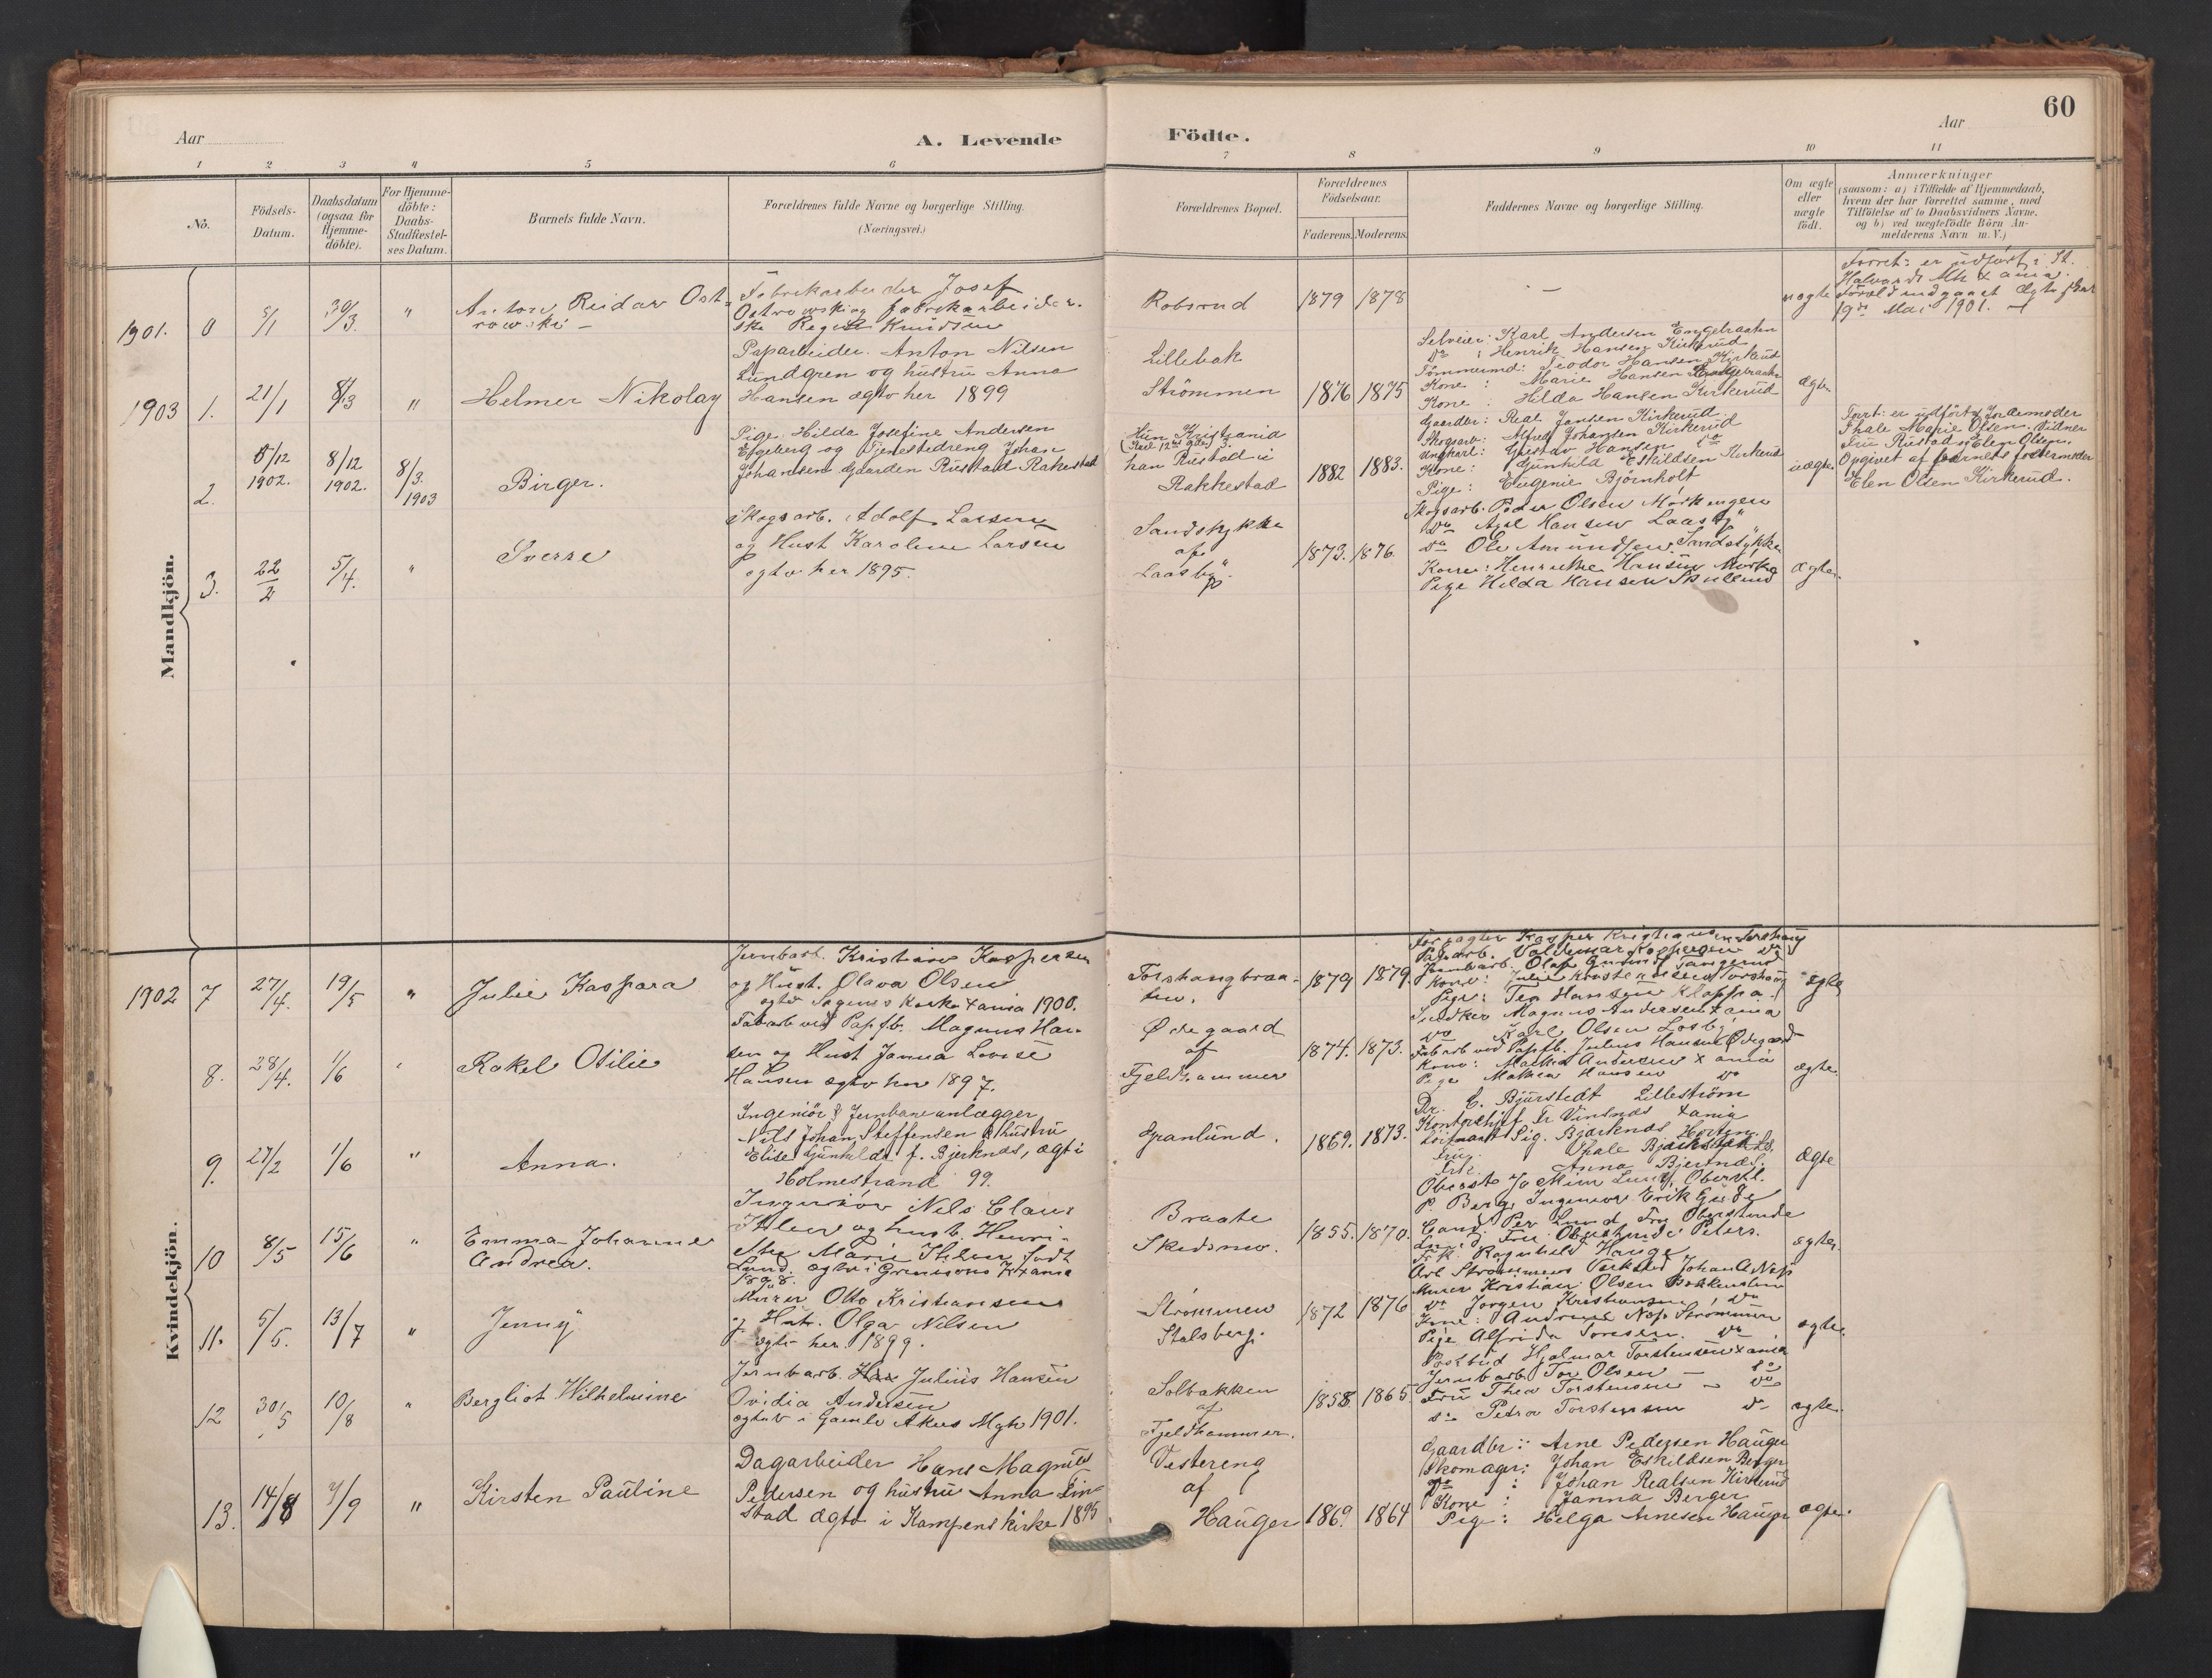 60
Aar
A. Levende
Födte.
Aar
1 2 3 4 5 6 7 8 9 10 11
No.
Födsels-
Datum.
Daabsdatum
(ogsaa for
Hjemme-
döbte).
For Hjemme-
döbte:
Daabs-
Stadfæstel-
ses Datum.
Barnets fulde Navn.
Forældrenes fulde Navne og borgerlige Stilling.
(Næringsvei.)
Forældrenes Bopæl.
Forældrenes
Födselsaar.
Faderens. Moderens.
Faddernes Navne og borgerlige Stilling.
Om ægte
eller
uægte
födt.
Anmærkninger
(saasom: a) i Tilfælde af Hjemmedaab,
hvem der har forrettet samme, med
Tilföielse af to Daabsvidners Navne.
og b) ved uægtefödte Börn An-
melderens Navn m. V.)
Mandkjön.
1901. 0 5/1 30/3. "
Anton Reidar Ost-
rowski –
Fabrikarbeider Josef
Ostrowski og fabrikarbeider-
ske Regine Knudsen
Robsrud
1879 1878
–
uægte
Forret: er udført i St.
Halvards Mk X ania.
Foræld indgaaet Ægteskab
19de Mai 1901. –
1903 1. 21/1 8/3 "
Helmer Nikolay
Paparbeider. Anton Nilsen
Lundgren og hustru Anna
Hansen ægtv her 1899
Lillebak
Strömmen
1876 1875
Selveier: Karl Andersen Engebraaten
Do : Henrik Hansen Kirkerud
Tömmermd: Teodor Hansen Kirkerud
Kone : Marie Hansen Engebraaten
Kone : Hilda Hansen Kirkerud
Ægte
2. 5/12 1902. 8/12 1902. 8/3. 1903
Birger.
Pige: Hilda Josefine Andersen
Engeberg og Tjenestedreng Johan
Johansen Gaarden Rustad Rakkestad
Hun Kristiania
han Rustad i
Rakkestad
1882 1883.
Gaardbr: Real Jansen Kirkerud
Skogsarb: Alfred Johansen Kirkerud
Ungkarl: Gustav Hansen do
Kone: Gunhild Eskildsen Kirkerud
Pige: Eugenie Bjørnholt
uægte
Forrt: er udført af Jordemoder
Thale Marie Olsen. Vidner
Fru Rustad og Elen Olsen.
Opgivet af barnets fostermoder
Elen Olsen Kirkerud.
3. 22/2 5/4. "
Sverre
Skogsarb. Adolf Larsen
og Hust Karoline Larsen
ægtv her 1895.
Sandstykke
af
Laasby
1873. 1876.
Skogsarb. Peder Olsen Mörkengen
Do Axel Hansen Laasby
do Ole Amundsen Sandstykke
Kone: Henrikke Hansen Mörke
Pige Hilda Hansen Skullerud
Ægte
Kvindekjön.
1902 7 27/4. 19/5 "
Julie Kaspara
Jernbarb. Kristian Kaspersen
og Hust. Olava Olsen
ægtv Sagenes Kirke Xania 1900.
Torshaugbraa-
ten.
1879 1879.
Forpagter Kasper Kristiansen Torshaug
Paparb. Valdemar Kaspersen do
Jernbarb. Olaf
Kone: Julie Kristensen Torshaug
Pige: Tea Hansen Kloppa
ægte
8. 28/4. 1/6 "
Rakel Otilie
Fabarb ved Papfb. Magnus Han-
sen og Hust Janna Lovise
Hansen ægtv her 1897.
Ødegaard
af
Fjeldhammer
1874. 1873.
Snedker Magnus Andersen Xania
do Karl Olsen Losby
Fabarb ved Papfb. Julius Hansen Ødegaard
Kone: Andersen Xania
Pige Hansen do
ægte.
9. 27/2 1/6 "
Anna.
Ingeniör v Jernbaneanlægger
Nils Johan Steffensen & hustru
Elise Gunhilda f. Bjerknæs, ægt i
Holmestrand 99.
Granlund.
1869. 1873.
Dr. C. Bjurstedt Lilleström
Kontorchef Fr Vinsnæs Xania
Löitnant Sig. Bjerknæs Horten.
Frue
Frk. Anna Bjerknæs.
Ægte
10 8/5 15/6 "
Emma Johanne
Andrea.
Ingeniör Nils Claus
Ihlen og hust. Henri-
ette Marie Ihlen födt
Lund. ægtv i Xania
1898.
Braate
Skedsmo.
1855. 1870.
Oberst Lund, Oberstl.
P. Berg, Ingeniør Erik Gude
Cand. Per Lund Fru Oberstinde
Lund Fru Oberstinde Peters.
Frk. Ragnhild Hauge
ægte.
11. 5/5. 13/7 "
Jenny
Murer Otto Kristiansen
og Hust. Olga Nilsen
ægtv her. 1899.
Strömmen
Stalsberg.
1872 1876
Arb Strömmens Verksted Johan A Næs
Murer Kristian Olsen Bakkenstuen
do Jörgen Kristiansen do
Kone: Andrine Næs Strömmen
Pige Alfrida Toresen do
ægte.
12 30/5 10/8 "
Bergliot Wilhelmine
Jernbarb. Julius Hansen
Ovidia Andersen
ægtev i Gamle Akers Mgh 1901.
Solbakken
af
Fjeldhammer.
1858. 1865.
Postbud Hjalmar Torstensen Xania
Jernbarb. Tor Olsen do
Fru Thea Torstensen – do
do Petra Torstensen do
ægte.
13. 14/8 7/9 "
Kirsten Pauline
Dagarbeider Hans Magnus
Pedersen og hustru Anna Lin-
stad ægtv i Kampens kirke 1895
Vestereng
af
Hauger
1869. 1864
Gaardbr: Arne Pedersen Hauger
Skomager: Johan Eskildsen Berger
Do : Johan Realsen Kirkerud
Kone : Janna Berger
Pige: Helga Arnesen Hauger
ægte.